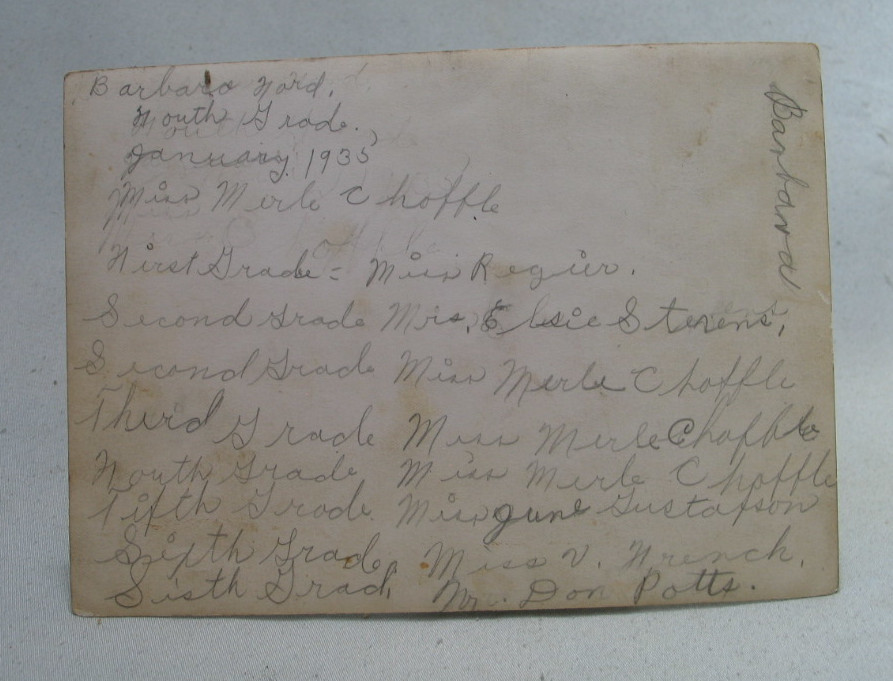 Barbara Nord.
Fouth Grade.
January, 1935
Miss Merle Choffle
First Grade = Miss Regier.
Second Grade Mrs. Elsie Stevens,
Second Grade Miss Merle Choffle
Third Grade Miss Merle Choffle
Fouth Grade Miss Merle Choffle
Fifth Grade Miss June Gustafson
Sixth Grade, Miss V. French.
Sisth Grad, Mr. Don Potts.
Barbara